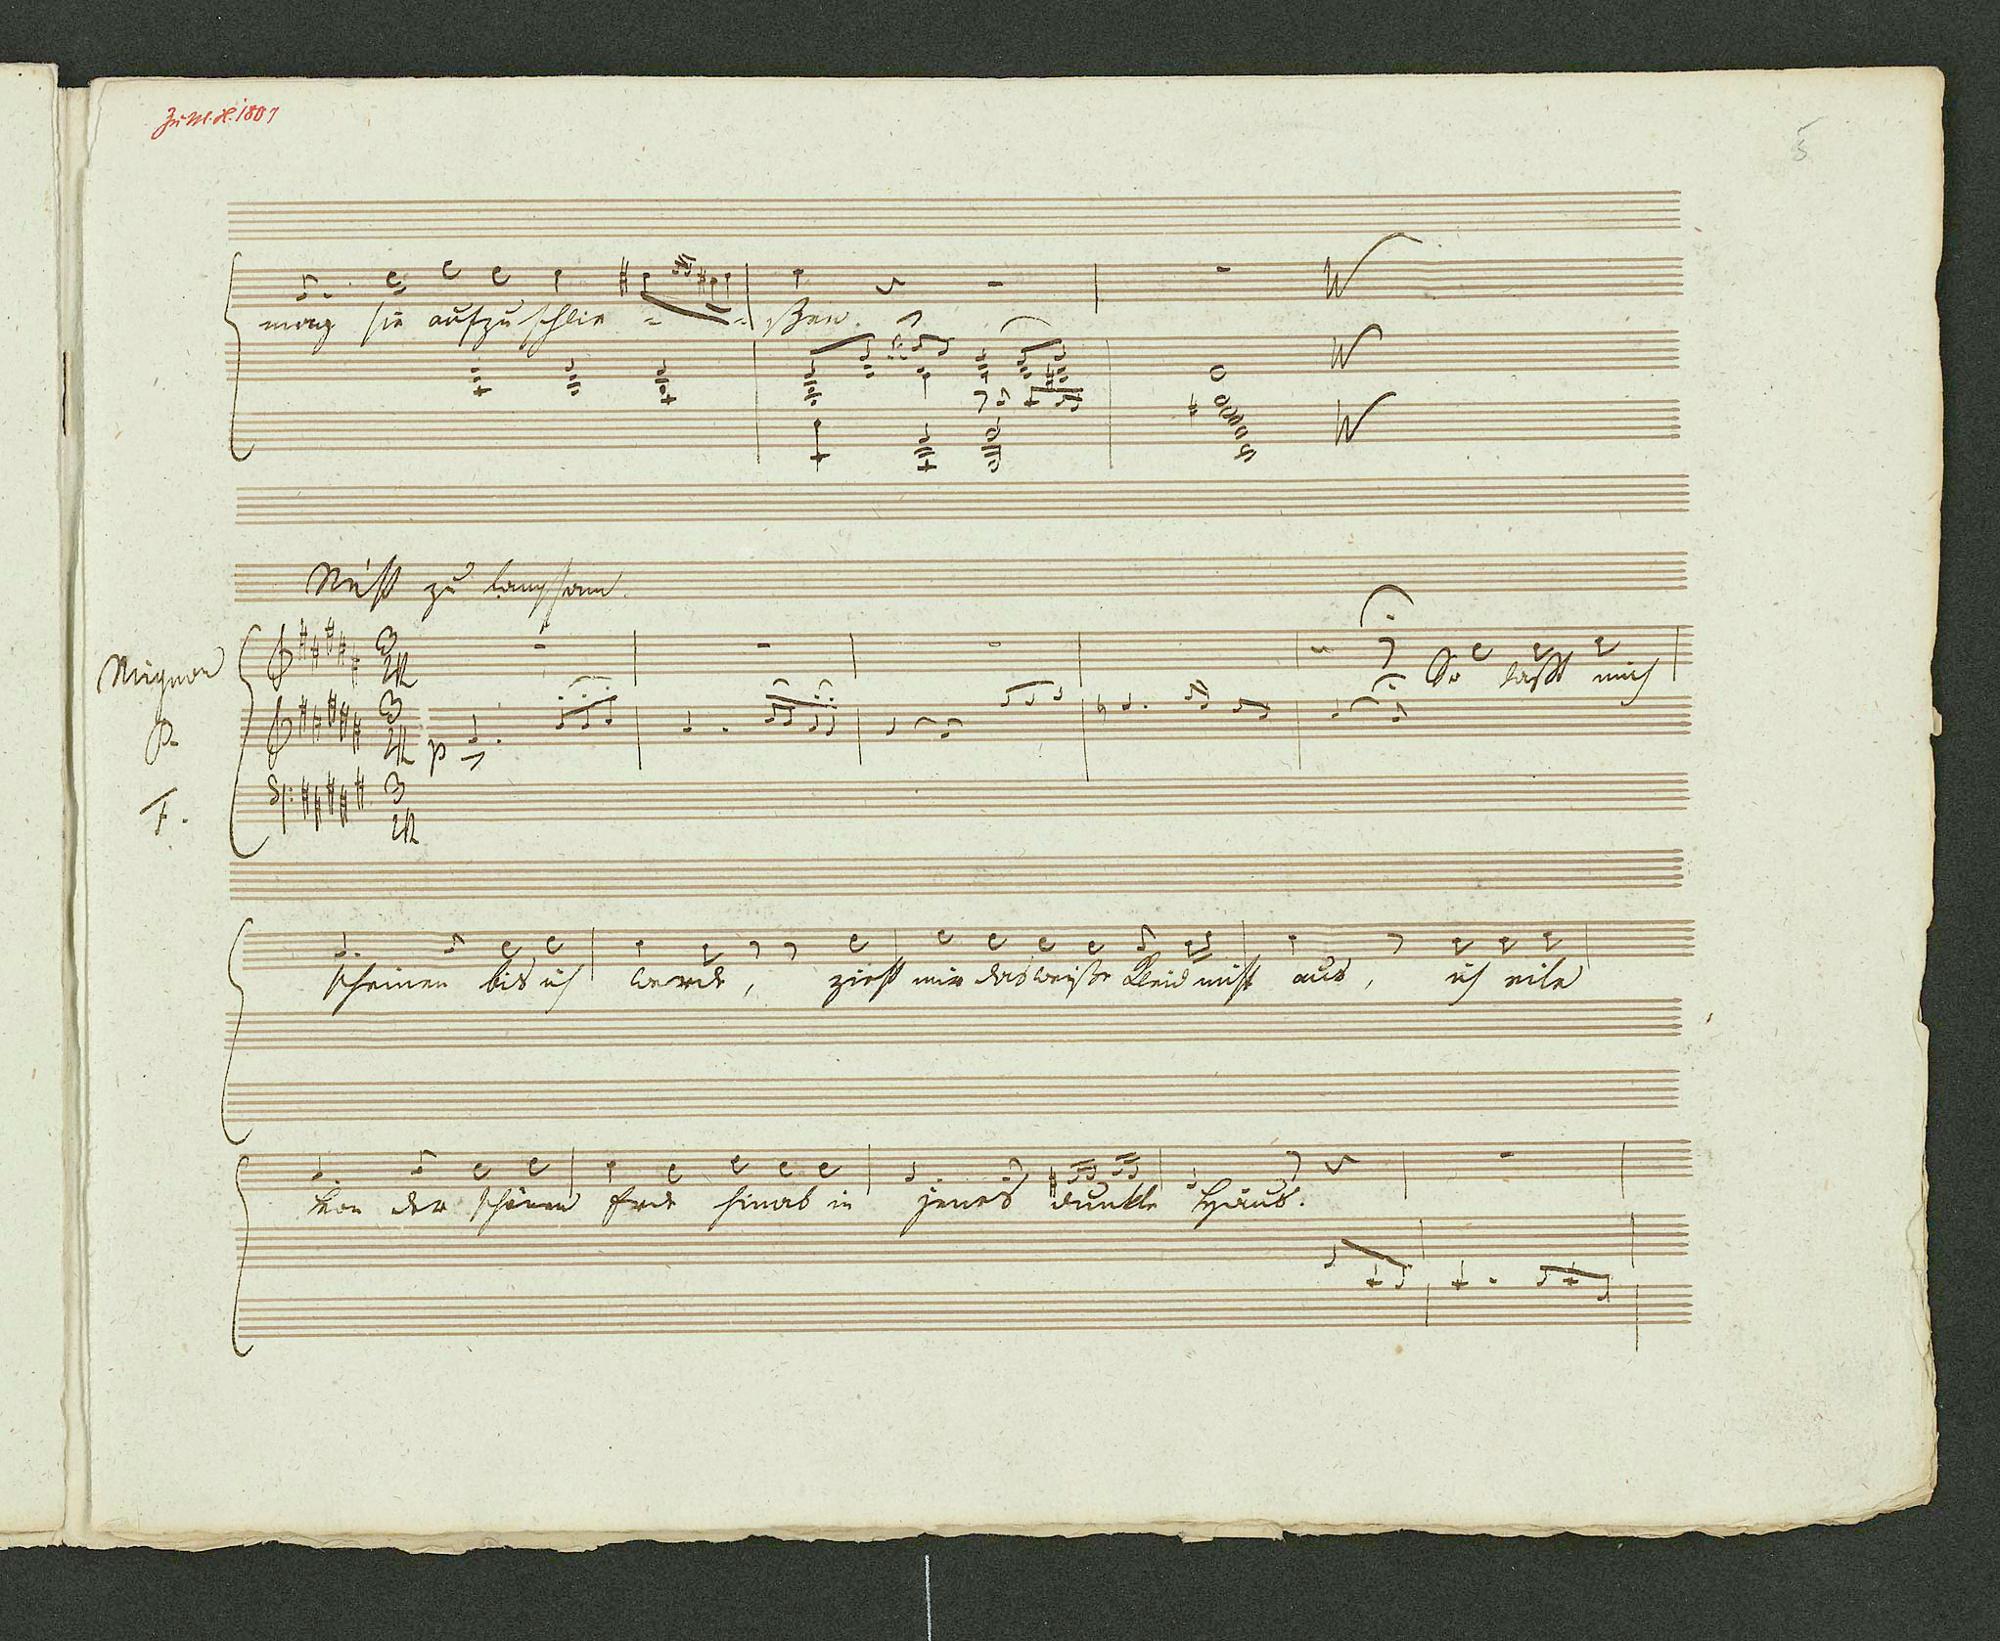 Zu M. H. 1887
5
mag sie aufzuschlie - - ßen.
Nicht zu langsam.
Mignon
So laßt mich
P.
p
F.
scheinen bis ich werde, zieht mir das weiße Kleid nicht aus, ich eile
von der schönen Erde hinab in jenes dunkle Haus.